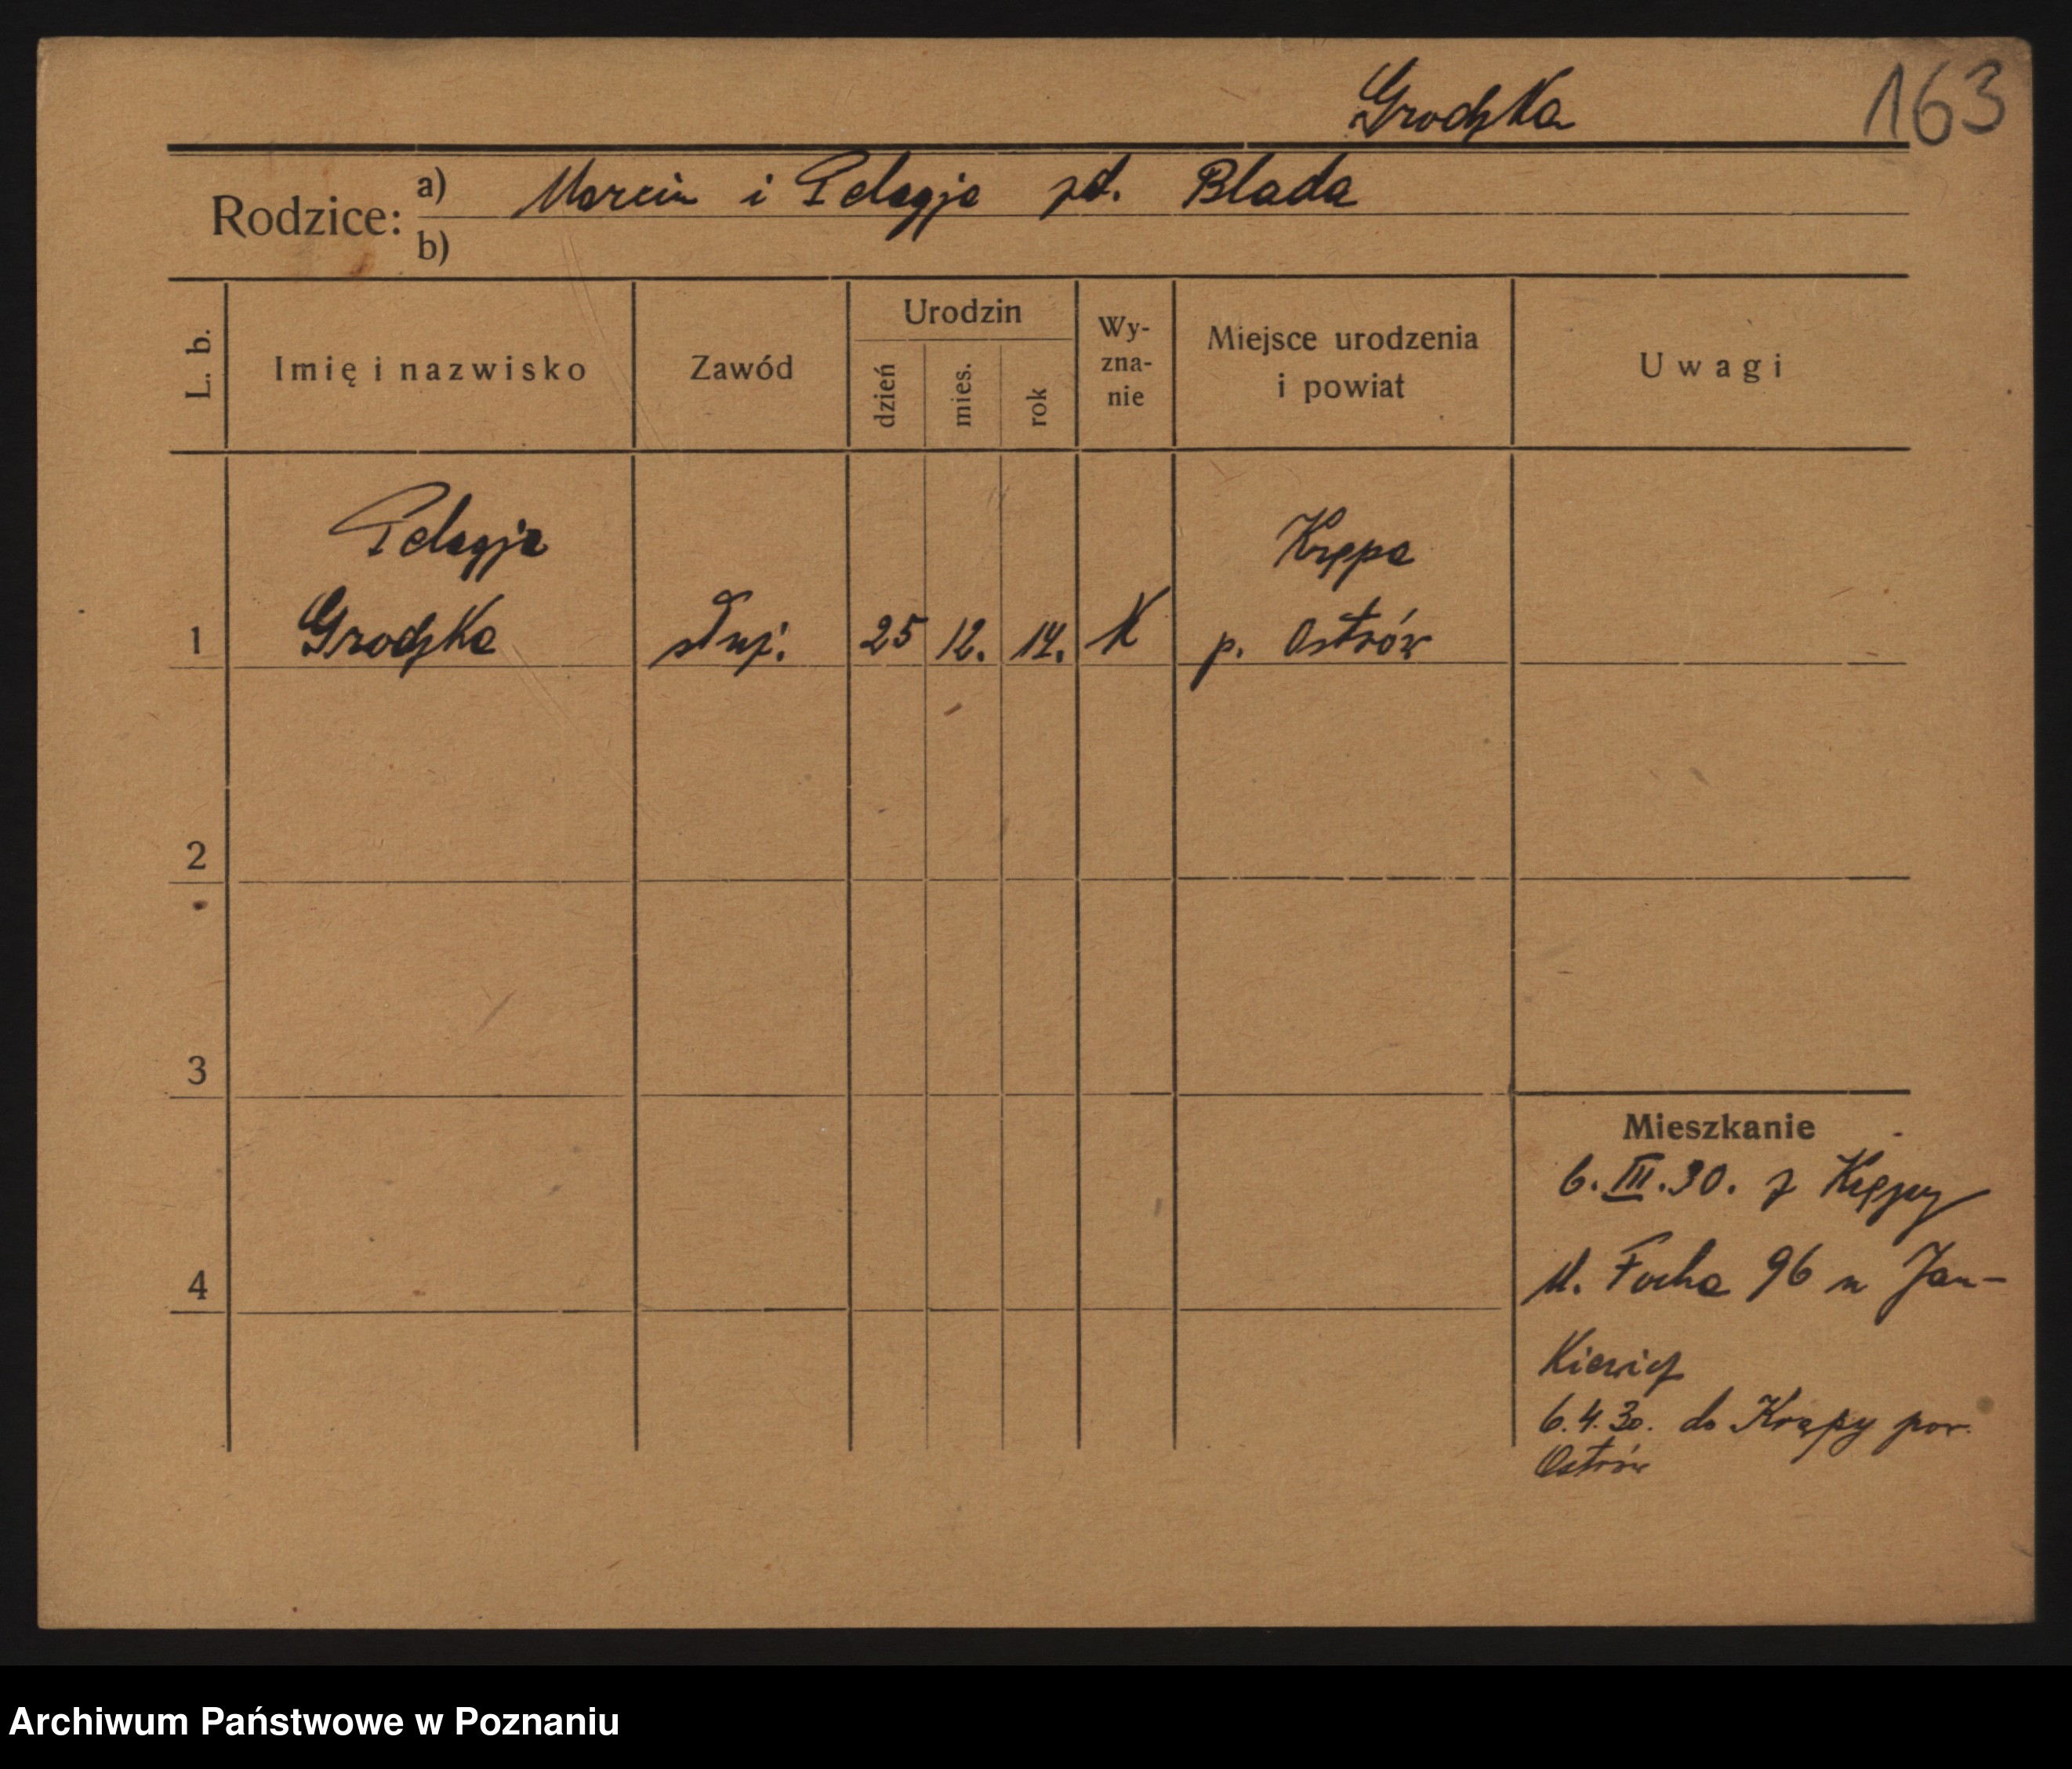 Grodzka 163
Rodzice: a) Marcin i Pelagja zd. Blada
b)
L. b. Imię i nazwisko Zawód Urodzin dzień mies. rok Wy-zna-nie Miejsce urodzenia i powiat Uwagi
Pelagja Krępa
1 Grodzka służ. 25 12. 14. K p. Ostrów
2
3
Mieszkanie
6. III. 30. z Krępy
4 ul. Focha 96 u Jan-
kiewicz
6.4.30. do Krępy pow.
Ostrów
Archiwum Państwowe w Poznaniu